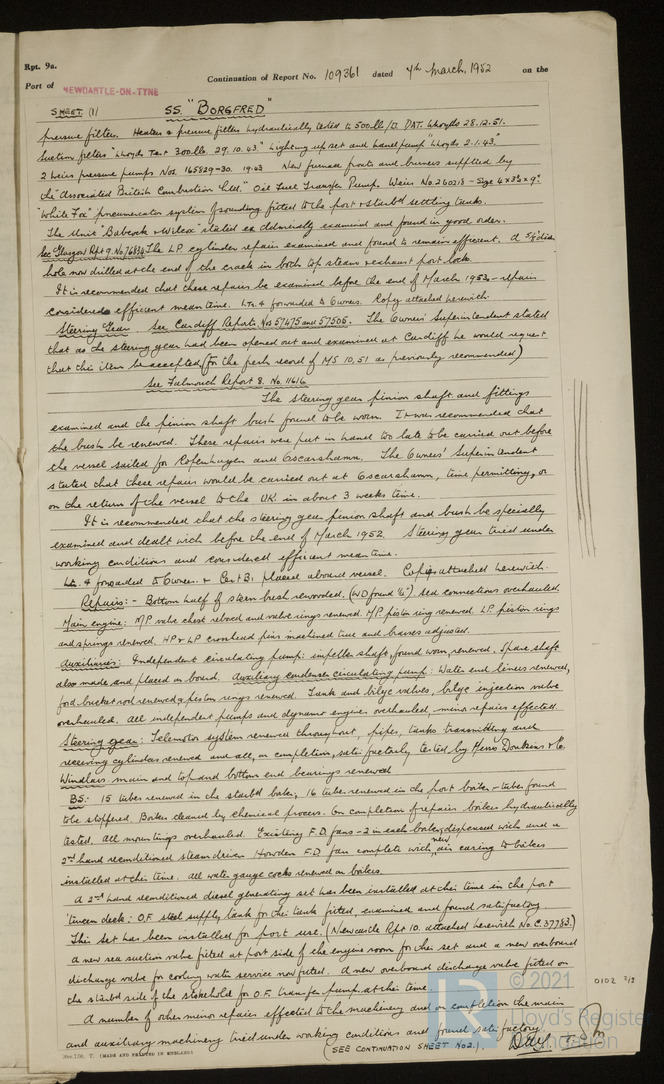 Rpt. 9a.
Port of NEWCASTLE-ON-TYNE
Continuation of Report No. 109361 dated 4th March, 1952 on the
SHEET (1) SS. "BORGFRED"
pressure filters. Heaters & pressure filters hydraulically tested to 500 lb/□. DAT. Lloyds 28.12.51.
Suction filters "Lloyds Test 300 lb. 29.10.43." Lighting up set and hand pump "Lloyds 2.1.43."
2 Weirs pressure pumps Nos 165829-30. 1943 New furnace fronts and burners supplied by
the "Associated British Combustion Ltd." Oil Fuel Transfer Pump. Weirs No. 260218 - Size 4" x 3½" x 9".
"White Fox" pneumercator system of sounding fitted to the port & starbd settling tanks.
The Unit "Babcock & Wilcox" stated as externally examined and found in good order.
See Glasgow Rpt 9. No 76834 The L.P. cylinder repair examined and found to remain efficient. A 5/8" dia
hole now drilled at the end of the crack in both top steam & exhaust port lock.
It is recommended that these repairs be examined before the end of March 1953 - repairs
considered efficient meantime. Ltr. 4 forwarded to Owners. Copy attached herewith.
Steering Gear See Cardiff Reports Nos 57475 and 57505. The Owners' Superintendent stated
that as the steering gear had been opened out and examined at Cardiff he would request
that this item be accepted (for the perh record of MS 10,51 as previously recommended)
See Falmouth Report 8. No. 11616
The steering gear pinion shaft and fittings
examined and the pinion shaft bush found to be worn. It was recommended that
the bush be renewed. These repairs were put in hand too late to be carried out before
the vessel sailed for Copenhagen and Oscarshamn. The Owners' Superintendent
stated that these repairs would be carried out at Oscarshamn, time permitting, or
on the return of the vessel to the UK in about 3 weeks time.
It is recommended that the steering gear pinion shaft and bush be specially
examined and dealt with before the end of March 1952. Steering gear tried under
working conditions and considered efficient meantime.
Ltr. 4 forwarded to Owners & Cert B, placed aboard vessel. Copies attached herewith.
Repairs: - Bottom half of stern bush rewooded. (WD found ½") sea connections overhauled.
Main engine: M.P. valve chest rebored and valve rings renewed. M.P. piston ring renewed. L.P. piston rings
and springs renewed. HP & LP crosshead pins machined true and brasses adjusted.
Auxiliaries: Independent circulating pump: impeller shaft, found worn, renewed. Spare shaft
also made and placed on board. Auxiliary condenser circulating pump: Water end liners renewed,
fwd. bucket rod renewed & piston rings renewed. Tank and bilge valves, bilge injection valve
overhauled. All independent pumps and dynamo engines overhauled, minor repairs effected.
Steering gear: Telemotor system renewed throughout, pipes, tanks transmitting and
receiving cylinders renewed and all, on completion, satisfactorily tested by Messrs Donkins & Co.
Windlass: main and top and bottom end bearings renewed
BS: 15 tubes renewed in the starbd boiler, 16 tubes renewed in the port boiler - tubes found
to be stoppered. Boilers cleaned by chemical process. On completion of repairs boilers hydraulically
tested. All mountings overhauled. Existing F.D. fans - 2 in each boiler, dispensed with and a
2nd hand reconditioned steam driven Howden F.D. fan complete with new air casing to boilers
installed at this time. All water gauge cocks renewed on boilers.
A 2nd hand reconditioned diesel generating set has been installed at this time in the port
'tween deck: O.F. steel supply tank for this tank fitted, examined and found satisfactory.
This set has been installed for port use. (Newcastle Rpt 10. attached herewith No. C.37783.)
A new sea suction valve fitted at port side of the engine room for this set and a new overboard
discharge valve for cooling water service now fitted. A new overboard discharge valve fitted on
the starbd side of the stokehold for O.F. transfer pump, at this time.
A number of other minor repairs effected to the machinery and on completion the main
and auxiliary machinery tried under working conditions and found satisfactory.
(SEE CONTINUATION SHEET No 2.).
(MADE AND PRINTED IN ENGLAND)
0102 2/3
© 2021
LR
Lloyd's Register
Foundation